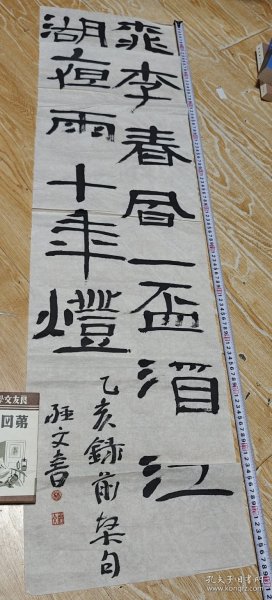 桃李春風一盃酒江
湖夜雨十年燈
乙亥錄前
句
文書
孔夫子旧书网